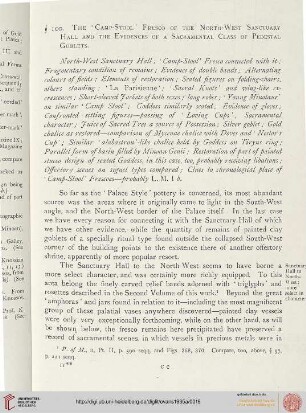 § 100. The 'Camp-Stool' Fresco of the North-West Sanctuary
Hall and the Evidences of a Sacramental Class of Pedestal
Goblets.
North-West Sanctuary Hall; 'Camp-Stool' Fresco connected with it;
Fragmentary condition of remains; Evidence of double bands; Alternating
colours of fields; Elements of restoration; Seated figures on folding-chairs,
others standing; 'La Parisienne'; Sacral Knots and wing-like
Short-sleeved Jackets of both sexes; long robes; 'Young Minoan'
on similar 'Camp Stool'; Goddess similarly seated; Evidence of gloves;
Confronted sitting figures—passing of 'Loving Cups'. Sacramental
character; Juice of Sacred Tree a source of Possession; Silver goblet; Gold
chalice as restored—comparison of Mycenae chalice with Doves and 'Nestor's
Cup'; Similar 'alabastron'-like chalice held by Goddess on Tiryns ring;
Parallel form of beaker filled by Minoan Genii; Restoration of part of painted
stucco design of seated Goddess, in this case, too, probably enacting libations;
Offertory scenes on signet types compared; Clues to chronological place of
'Camp-Stool' Frescoes—probably L. M. I b.
So far as the 'Palace Style' pottery is concerned, its most abundant
source was the areas where it originally came to light in the South-West
angle, and the North-West border of the Palace itself. In the last case
we have every reason for connecting it with the Sanctuary Hall of which
we have other evidence, while the quantity of remains of painted clay
goblets of a specially ritual type found outside the collapsed South-West
corner of the building points to the existence there of another offertory
shrine, apparently of more popular resort.
The Sanctuary Hall to the North-West seems to have borne a
more select character, and was certainly more richly equipped. To this
area belong the finely carved relief bands adorned with 'triglyphs' and
rosettes described in the Second Volume of this work.¹ Beyond the great
'amphoras' and jars found in relation to it—including the most magnificent
group of these palatial vases anywhere discovered—painted clay vessels
were only very exceptionally forthcoming, while on the other hand, as will
be shown below, the fresco remains here precipitated have preserved a
record of sacramental scenes, in which vessels in precious metals were in
Sanctuary
Hall to
North-
West:
select in
character.
C c
http://digi.ub.uni-heidelberg.de/diglit/evans1935a/0016